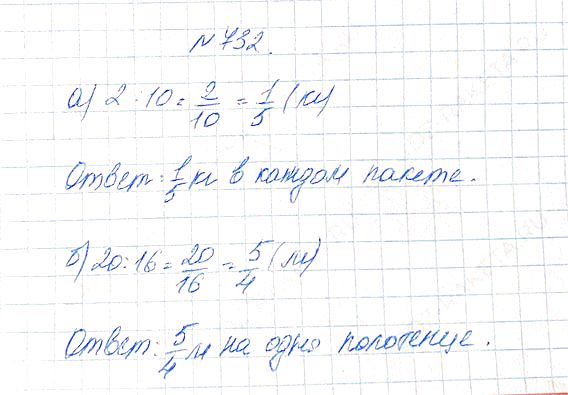 №732.
а) 2 : 10 = 2/10 = 1/5 (кг)
Ответ: 1/5 кг в каждом пакете.
б) 20 : 16 = 20/16 = 5/4 (м)
Ответ: 5/4 м на одно полотенце.